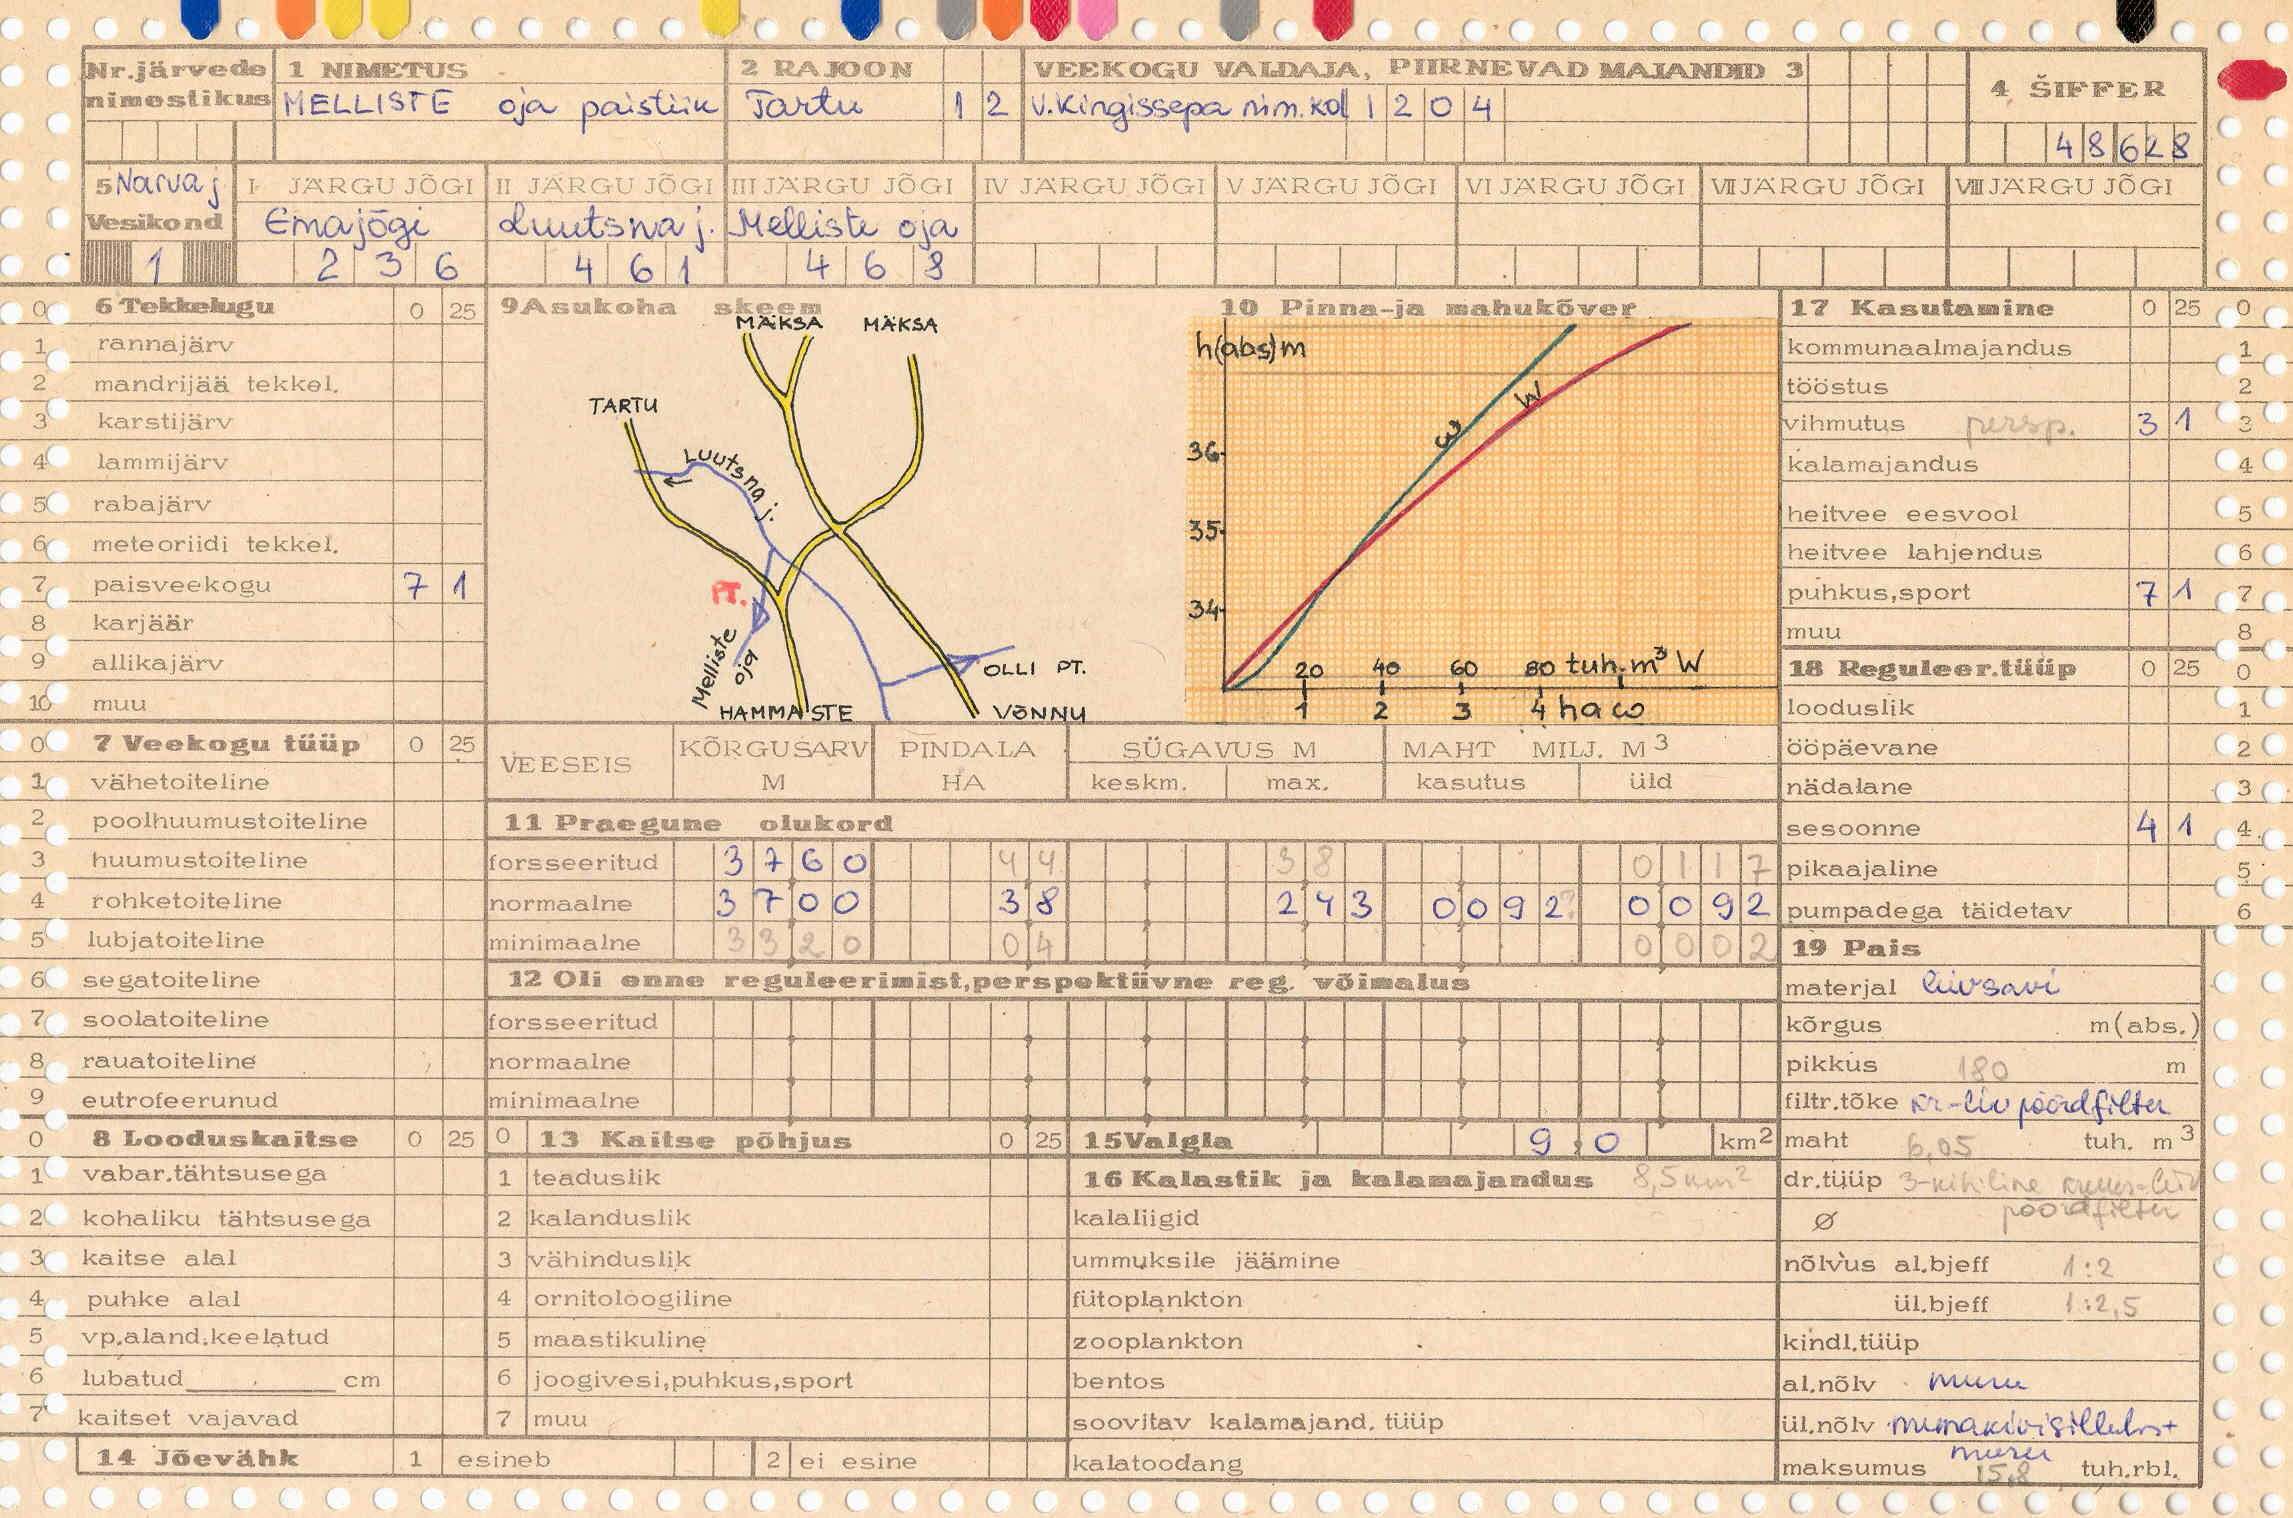 Nr.järvede nimestikus
1 NIMETUS
MELLISTE oja paistiik
2 RAJOON
Tartu 1 2
VEEKOGU VALDAJA, PIIRNEVAD MAJANDID 3
V.Kingissepa nim. kol 1 2 0 4
4 ŠIFFER
4 8 6 2 8
5 Narva j
Vesikond
1
I JÄRGU JÕGI
Emajõgi
2 3 6
II JÄRGU JÕGI
Luutsna j.
4 6 1
III JÄRGU JÕGI
Melliste oja
4 6 8
IV JÄRGU JÕGI
V JÄRGU JÕGI
VI JÄRGU JÕGI
VII JÄRGU JÕGI
VIII JÄRGU JÕGI
0 6 Tekkelugu 0 25
1 rannajärv
2 mandrijää tekkel.
3 karstijärv
4 lammijärv
5 rabajärv
6 meteoriidi tekkel.
7 paisveekogu 7 1
8 karjäär
9 allikajärv
10 muu
0 7 Veekogu tüüp 0 25
1 vähetoiteline
2 poolhuumustoiteline
3 huumustoiteline
4 rohketoiteline
5 lubjatoiteline
6 segatoiteline
7 soolatoiteline
8 rauatoiteline
9 eutrofeerunud
0 8 Looduskaitse 0 25
1 vabar.tähtsusega
2 kohaliku tähtsusega
3 kaitse alal
4 puhke alal
5 vp.aland.keelatud
6 lubatud cm
7 kaitset vajavad
9 Asukoha skeem
MÄKSA MÄKSA
TARTU
Luutsna j.
PT.
Melliste oja
OLLI PT.
HAMMASTE VÕNNU
10 Pinna-ja mahukõver
h(abs)m
ω W
36
35
34
20 40 60 80 tuh. m³ W
1 2 3 4 ha ω
VEESEIS
KÕRGUSARV M
PINDALA HA
SÜGAVUS M
keskm. max.
MAHT MILJ. M3
kasutus üld
11 Praegune olukord
forsseeritud 3 7 6 0 4 4 3 8 0 1 1 7
normaalne 3 7 0 0 3 8 2 4 3 0 0 9 2? 0 0 9 2
minimaalne 3 3 2 0 0 4 0 0 0 2
12 Oli enne reguleerimist,perspektiivne reg. võimalus
forsseeritud
normaalne
minimaalne
0 13 Kaitse põhjus 0 25
1 teaduslik
2 kalanduslik
3 vähinduslik
4 ornitoloogiline
5 maastikuline
6 joogivesi,puhkus,sport
7 muu
14 Jõevähk 1 esineb 2 ei esine
15 Valgla 9 0 km2
16 Kalastik ja kalamajandus 8,5 km²
kalaliigid
ummuksile jäämine
fütoplankton
zooplankton
bentos
soovitav kalamajand. tüüp
kalatoodang
17 Kasutamine 0 25 0
kommunaalmajandus 1
tööstus 2
vihmutus persp. 3 1 3
kalamajandus 4
heitvee eesvool 5
heitvee lahjendus 6
puhkus,sport 7 1 7
muu 8
18 Reguleer.tüüp 0 25 0
looduslik 1
ööpäevane 2
nädalane 3
sesoonne 4 1 4
pikaajaline 5
pumpadega täidetav 6
19 Pais
materjal liivsavi
kõrgus m(abs.)
pikkus 180 m
filtr.tõke kr-liiv pöördfilter
maht 6,05 tuh. m3
dr.tüüp 3-kihiline kruus-liiv
pöördfilter
Ø
nõlvus al.bjeff 1:2
ül.bjeff 1:2,5
kindl.tüüp
al.nõlv muru
ül.nõlv munakivisillutis+
muru
maksumus 15,8 tuh.rbl.